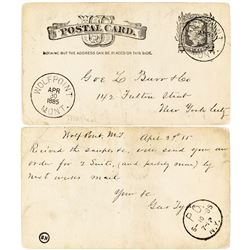 POSTAL CARD.
NOTHING BUT THE ADDRESS CAN BE PLACED ON THIS SIDE.
WOLFPOINT
APR
30
1885
MONT.
Geo. L Burr & Co
142 Fulton Street
New York City
Wolf Point, M.T. April 29" 85
Recived the samples, will send you an
order for 2 Suits, (and possibly more) by
next weeks mail
Yours &c
Geo
P.O.
N.Y.